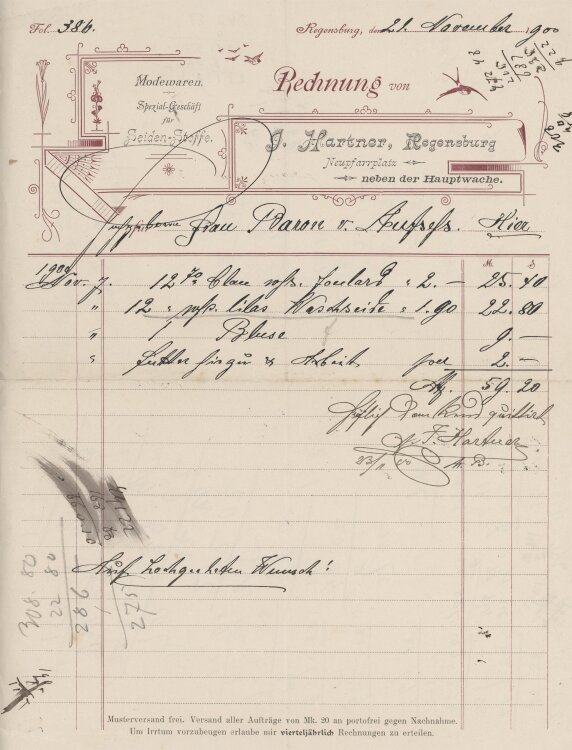 Fol. 386.
Regensburg, den 21. November 1900
Modewaren.
Spezial-Geschäft
für
Seiden-Stoffe.
Rechnung von
J. Hartner, Regensburg
Neupfarrplatz
neben der Hauptwache.
Frau Baron v. Aufseß. Hier
M. ₰
1900
Nov. 7. 12 70 blau Foulard " 2.— 25. 40
" 12 " lilas Waschseide " 1.90 22. 80
" 1 Bluse 9.—
" Futter hiezu & Arbeit 2.—
M. 59. 20
dankend quittirt
J. Hartner
Auf hochgeehrten Wunsch!
308.80
22 80
286
275
Musterversand frei. Versand aller Aufträge von Mk. 20 an portofrei gegen Nachnahme.
Um Irrtum vorzubeugen erlaube mir vierteljährlich Rechnungen zu erteilen.